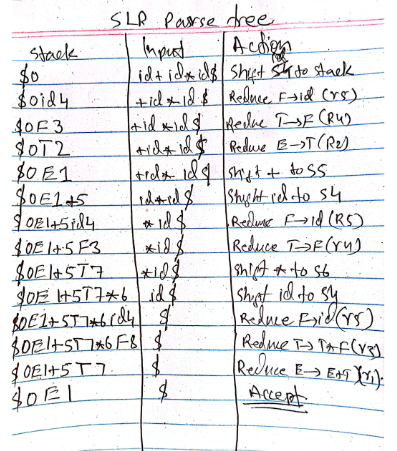 SLR Parse tree
Stack Input Action
$0 id+id*id$ Shift S4 to stack
$0id4 +id*id$ Reduce F→id (r5)
$0F3 +id*id$ Reduce T→F (R4)
$0T2 +id*id$ Reduce E→T (R2)
$0E1 +id*id$ Shift + to S5
$0E1+5 id*id$ Shift id to S4
$0E1+5id4 *id$ Reduce F→id (R5)
$0E1+5F3 *id$ Reduce T→F (r4)
$0E1+5T7 *id$ Shift * to S6
$0E1+5T7*6 id$ Shift id to S4
$0E1+5T7*6id4 $ Reduce F→id (r5)
$0E1+5T7*6F8 $ Reduce T→T*F (r3)
$0E1+5T7 $ Reduce E→E+T (r1)
$0E1 $ Accept